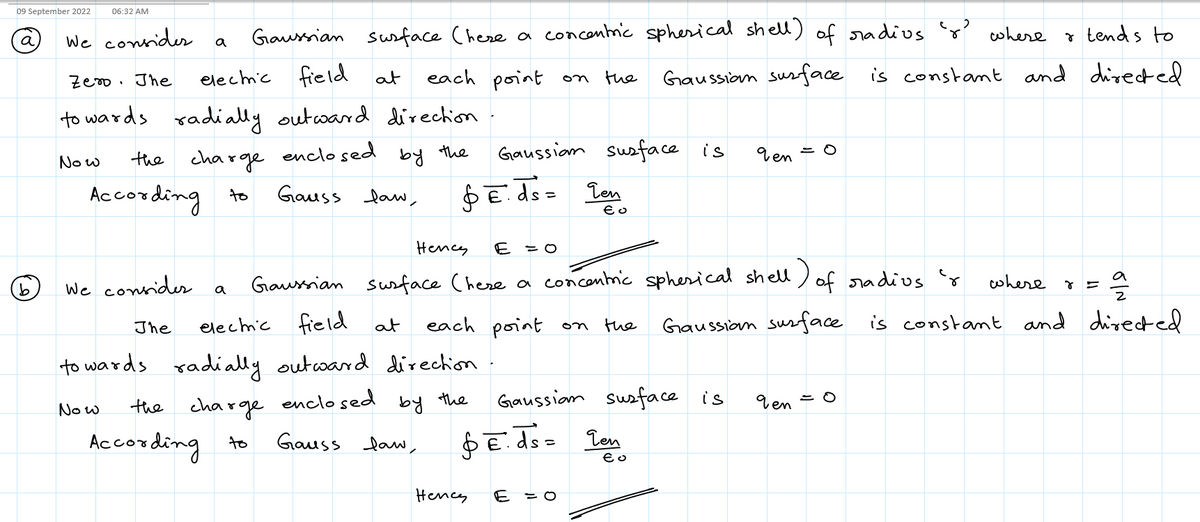 09 September 2022 06:32 AM
(a) We consider a Gaussian surface (here a concentric spherical shell) of radius 'r' where r tends to
zero. The electric field at each point on the Gaussian surface is constant and directed
towards radially outward direction.
Now the charge enclosed by the Gaussian surface is qen = 0
According to Gauss law, ∮E.ds = qen/ϵ0
Hence, E = 0
(b) We consider a Gaussian surface (here a concentric spherical shell) of radius 'r where r = a/2
The electric field at each point on the Gaussian surface is constant and directed
towards radially outward direction.
Now the charge enclosed by the Gaussian surface is qen = 0
According to Gauss law, ∮E.ds = qen/ϵ0
Hence, E = 0